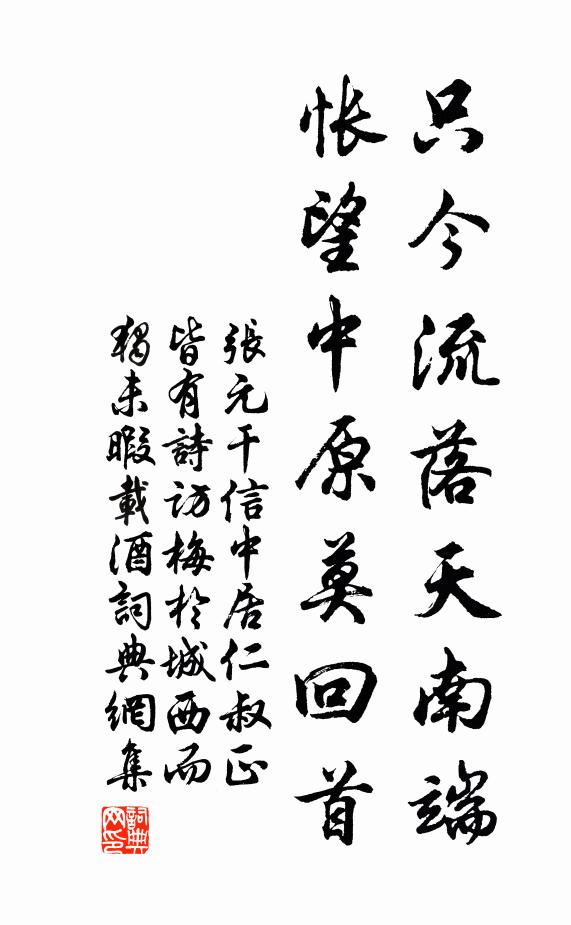 只今流落天南端
悵望中原莫回首
張元干信中居仁叔正
皆有詩訪梅於城西而
獨未暇載酒詞典網集
詞典
网印